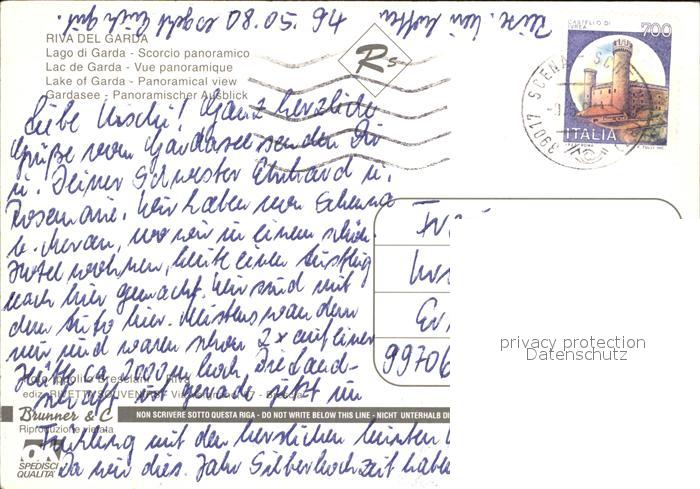 RIVA DEL GARDA
Lago di Garda - Scorcio panoramico
Lac de Garde - Vue panoramique
Lake of Garda - Panoramical view
Gardasee - Panoramischer Ausblick
CASTELLO DI
IVREA
700
ITALIA
39017 SCENA
Liebe Uschi! Ganz herzliche
Grüße vom Gardasee senden Dir
u. Deiner Schwester Ehrhard u.
Rosemarie. Wir haben von Schenna
b. Meran, wo wir in einem schön.
Hotel wohnen, heute einen Ausflug
nach hier gemacht. Wir sind mit
dem Auto hier. Meistens wandern
wir und waren schon 2x auf einer
Hütte ca. 2000 m hoch. Die Land-
schaft ist gerade jetzt im
Frühling mit den herrlichen bunten
Da wir dies. Jahr Silberhochzeit habe
99706
privacy protection
Datenschutz
Brunner & C
Riproduzione vietata
NON SCRIVERE SOTTO QUESTA RIGA - DO NOT WRITE BELOW THIS LINE - NICHT UNTERHALB DI
SPEDISCI
QUALITA'